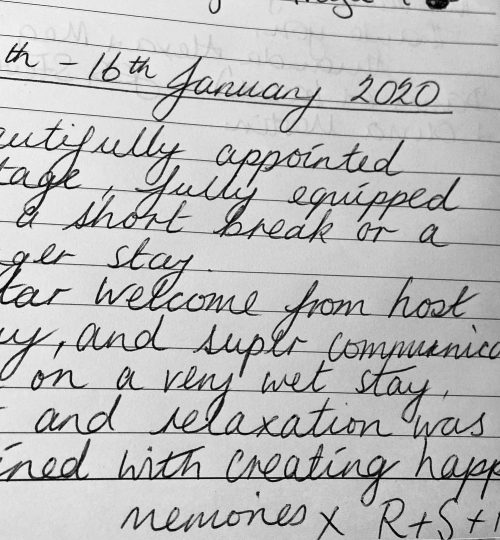 th - 16th January 2020
autifully appointed
tage, fully equipped
a short break or a
ger stay.
tar welcome from host
y, and super communica
on a very wet stay,
and relaxation was
ined with creating happ
memories x R+S+